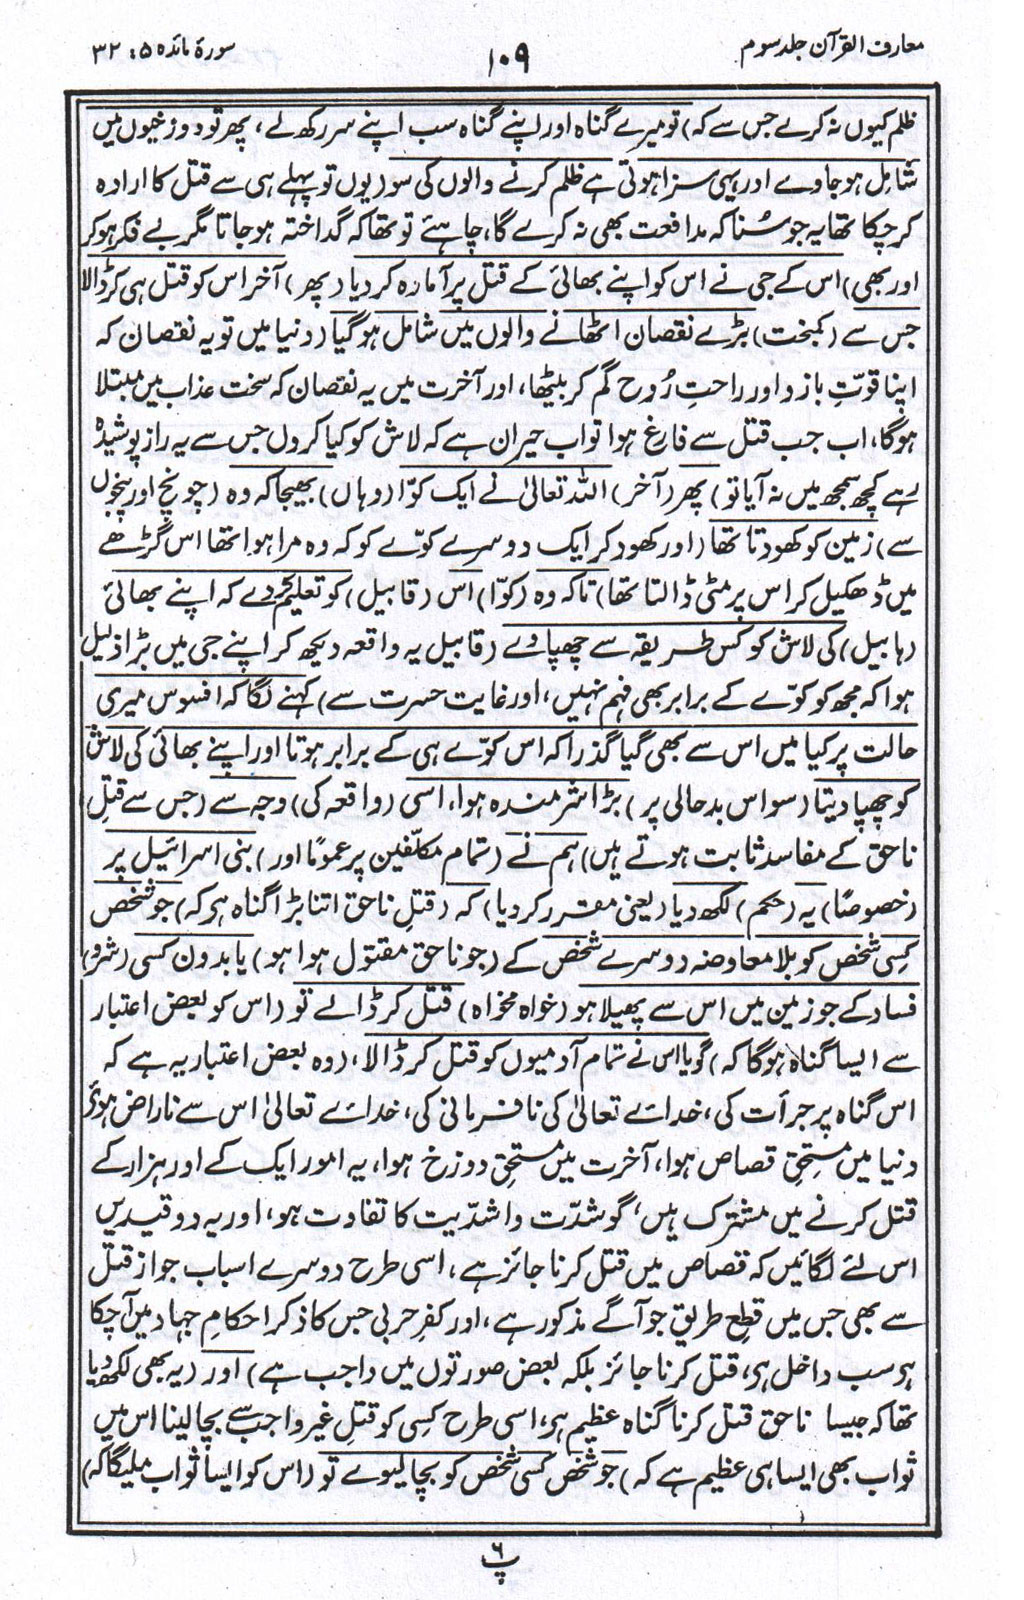 معارف القرآن جلد سوم
۱۰۹
سورۂ مائدہ ۵: ۳۲
ظلم کیوں نہ کرے جس سے کہ) تو میرے گناہ اور اپنے گناہ سب اپنے سر رکھ لے، پھر تو دوزخیوں میں
شامل ہو جاوے اور یہی سزا ہوتی ہے ظلم کرنے والوں کی سو (یوں تو پہلے ہی سے قتل کا ارادہ
کر چکا تھا یہ جو سُنا کہ مدافعت بھی نہ کرے گا، چاہئے تو تھا کہ گداختہ ہو جاتا مگر بے فکر ہو کر
اور بھی) اس کے جی نے اس کو اپنے بھائی کے قتل پر آمادہ کر دیا (پھر) آخر اس کو قتل ہی کر ڈالا
جس سے (کمبخت) بڑے نقصان اٹھانے والوں میں شامل ہو گیا (دنیا میں تو یہ نقصان کہ
اپنا قوتِ بازو اور راحتِ رُوح گم کر بیٹھا، اور آخرت میں یہ نقصان کہ سخت عذاب میں مبتلا
ہوگا، اب جب قتل سے فارغ ہوا تو اب حیران ہے کہ لاش کو کیا کروں جس سے یہ راز پوشیدہ
رہے کچھ سمجھ میں نہ آیا تو) پھر (آخر) اللہ تعالیٰ نے ایک کوّا (وہاں) بھیجا کہ وہ (چونچ اور پنجوں
سے) زمین کو کھودتا تھا (اور کھود کر ایک دوسرے کوّے کو کہ وہ مرا ہوا تھا اس گڑھے
میں ڈھکیل کر اس پر مٹی ڈالتا تھا) تاکہ وہ (کوّا) اس (قابیل) کو تعلیم کردے کہ اپنے بھائی
(ہابیل) کی لاش کو کس طریقہ سے چھپاوے (قابیل یہ واقعہ دیکھ کر اپنے جی میں بڑا ذلیل
ہوا کہ مجھ کو کوّے کے برابر بھی فہم نہیں، اور غایت حسرت سے) کہنے لگا کہ افسوس میری
حالت پر کیا میں اس سے بھی گیا گذرا کہ اس کوّے ہی کے برابر ہوتا اور اپنے بھائی کی لاش
کو چھپا دیتا (سو اس بدحالی پر) بڑا شرمندہ ہوا، اسی (واقعہ کی) وجہ سے (جس سے قتلِ
ناحق کے مفاسد ثابت ہوتے ہیں) ہم نے (تمام مکلّفین پر عمومًا اور) بنی اسرائیل پر
(خصوصًا) یہ (حکم) لکھ دیا (یعنی مقرر کر دیا) کہ (قتلِ ناحق اتنا بڑا گناہ ہی کہ) جو شخص
کسی شخص کو بلا معاوضہ دوسرے شخص کے (جو ناحق مقتول ہوا ہو) یا بدون کسی (شر و)
فساد کے جو زمین میں اس سے پھیلا ہو (خواہ مخواہ) قتل کر ڈالے تو (اس کو بعض اعتبار
سے ایسا گناہ ہوگا کہ) گویا اس نے تمام آدمیوں کو قتل کر ڈالا، (وہ بعض اعتبار یہ ہے کہ
اس گناہ پر جرأت کی، خدائے تعالیٰ کی نافرمانی کی، خدائے تعالیٰ اس سے ناراض ہوئے،
دنیا میں مستحقِ قصاص ہوا، آخرت میں مستحقِ دوزخ ہوا، یہ امور ایک کے اور ہزار کے
قتل کرنے میں مشترک ہیں، گو شدّت و اشدّیت کا تفاوت ہو، اور یہ دو قیدیں
اس لئے لگائیں کہ قصاص میں قتل کرنا جائز ہے، اسی طرح دوسرے اسباب جوازِ قتل
سے بھی جس میں قطعِ طریق جو آگے مذکور ہے، اور کفرِ حربی جس کا ذکر احکامِ جہاد میں آ چکا
ہی سب داخل ہی، قتل کرنا جائز بلکہ بعض صورتوں میں واجب ہے) اور (یہ بھی لکھ دیا
تھا کہ جیسا ناحق قتل کرنا گناہ عظیم ہی، اسی طرح کسی کو قتلِ غیر واجب سے بچا لینا اس میں
ثواب بھی ایسا ہی عظیم ہے کہ) جو شخص کسی شخص کو بچا لیوے تو (اس کو ایسا ثواب ملیگا کہ)
پ ۶